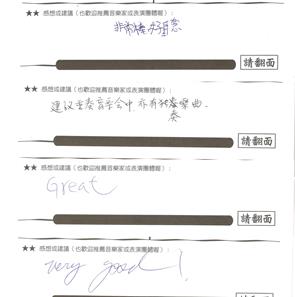 ★★ 感想或建議（也歡迎推薦音樂家或表演團體喔）：
非常棒
請翻面
★★ 感想或建議（也歡迎推薦音樂家或表演團體喔）：
建议重奏音乐会中，亦有独奏樂曲.
奏
請翻面
★★ 感想或建議（也歡迎推薦音樂家或表演團體喔）：
Great
請翻面
★★ 感想或建議（也歡迎推薦音樂家或表演團體喔）：
very good!
請翻面